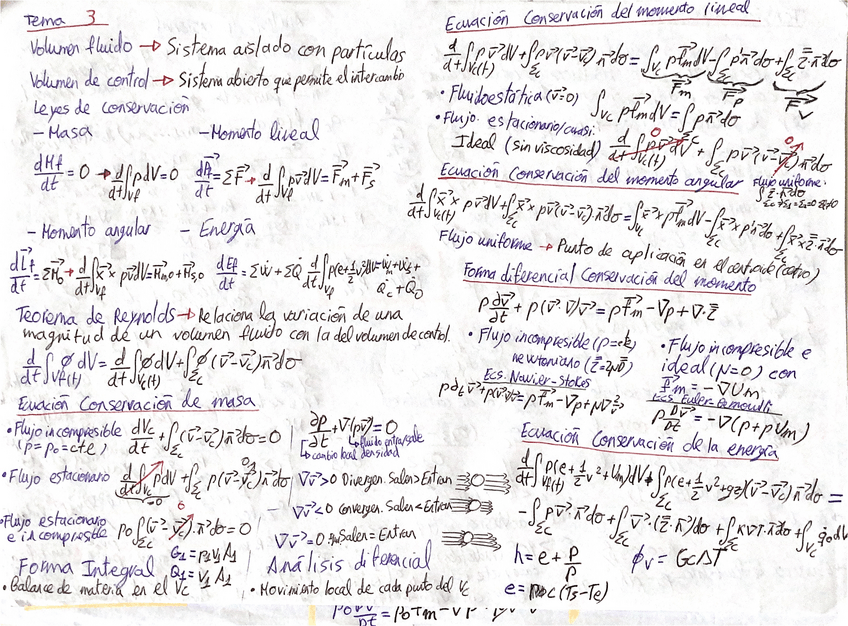 Tema 3
Volumen fluido → Sistema aislado con partículas
Volumen de control → Sistema abierto que permite el intercambio
Leyes de conservación
- Masa - Momento lineal
dMf/dt = 0 → d/dt ∫_Vf ρdV = 0 dA⃗/dt = ΣF⃗ → d/dt ∫_Vf ρv⃗dV = F⃗m + F⃗s
- Momento angular - Energía
dL⃗f/dt = ΣM⃗o → d/dt ∫_Vf x⃗ × ρv⃗dV = M⃗m,o + M⃗s,o dEf/dt = ΣẆ + ΣQ̇ d/dt ∫_Vf ρ(e + 1/2 v²)dV = Ẇm + Ẇs +
Q̇c + Q̇o
Teorema de Reynolds → Relaciona la variación de una
magnitud de un volumen fluido con la del volumen de control.
d/dt ∫_Vf(t) ∅dV = d/dt ∫_Vc(t) ∅dV + ∫_Σc ∅(v⃗ - v⃗c)n⃗dσ
Ecuación Conservación de masa
• Flujo incompresible dVc/dt + ∫_Σc (v⃗ - v⃗c)n⃗dσ = 0
(ρ = ρo = cte)
• Flujo estacionario d/dt ∫_Vc ρdV + ∫_Σc ρ(v⃗ - v⃗c)n⃗dσ
=0
• Flujo estacionario ρo ∫_Σc (v⃗ - v⃗c)·n⃗dσ = 0
e incompresible
Forma Integral G1 = ρ1 v1 A1
Q1 = v1 A1
• Balance de materia en el Vc
∂ρ/∂t + ∇(ρv⃗) = 0
cambio local densidad
fluido entra/sale
∇v⃗ > 0 Divergen. Salen > Entran
∇v⃗ < 0 Convergen. Salen < Entran
∇v⃗ = 0 Salen = Entran
Análisis diferencial
• Movimiento local de cada punto del Vc
Ecuación Conservación del momento lineal
d/dt ∫_Vc(t) ρv⃗dV + ∫_Σc ρv⃗(v⃗ - v⃗c)·n⃗dσ = ∫_Vc ρf⃗m dV - ∫_Σc ρn⃗dσ + ∫_Σc τ̿·n⃗dσ
F⃗m F⃗p F⃗v
• Fluidoestática (v⃗=0) ∫_Vc ρf⃗m dV = ∫ ρn⃗dσ
• Flujo estacionario/cuasi.
Ideal (sin viscosidad) d/dt ∫_Vc(t) ρv⃗dV + ∫_Σc ρv⃗(v⃗ - v⃗c)n⃗dσ
Ecuación Conservación del momento angular Flujo uniforme:
d/dt ∫_Vc(t) x⃗ × ρv⃗dV + ∫_Σc x⃗ × ρv⃗(v⃗ - v⃗c)·n⃗dσ = ∫_Vc x⃗ × ρf⃗m dV - ∫_Σc x⃗ × ρn⃗dσ + ∫_Σc x⃗ × τ̿·n⃗dσ
Flujo uniforme → Punto de aplicación en el centroide (centro)
Forma diferencial Conservación del momento
ρ ∂v⃗/∂t + ρ(v⃗·∇)v⃗ = ρf⃗m - ∇p + ∇·τ̿
• Flujo incompresible (ρ=cte)
newtoniano (τ̿ = 2μD̿)
Ecs. Navier-Stokes
ρ∂t v⃗ + ρ(v⃗∇)v⃗ = ρf⃗m - ∇p + μ∇²v⃗
• Flujo incompresible e
ideal (μ=0) con
f⃗m = -∇Um
Ecs Euler-Bernoulli
ρ Dv⃗/Dt = -∇(p + ρUm)
Ecuación Conservación de la energía
d/dt ∫_Vf(t) ρ(e + 1/2 v² + Um)dV + ∫_Σc ρ(e + 1/2 v² + gz)(v⃗ - v⃗c)n⃗dσ =
- ∫_Σc ρv⃗·n⃗dσ + ∫_Σc v⃗·(τ̿·n⃗)dσ + ∫_Σc K∇T·n⃗dσ + ∫_Vc q̇o dV
h = e + p/ρ ϕv = GcΔT
e = ρoc(Ts - Te)